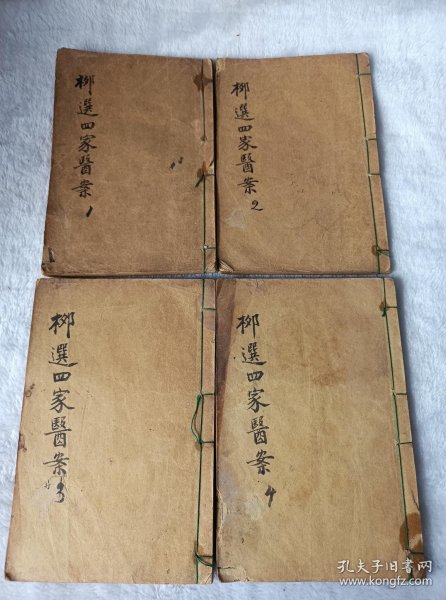 柳選四家醫案
1
柳選四家醫案
2
柳選四家醫案
3
柳選四家醫案
4
孔夫子旧书网
www.kongfz.com